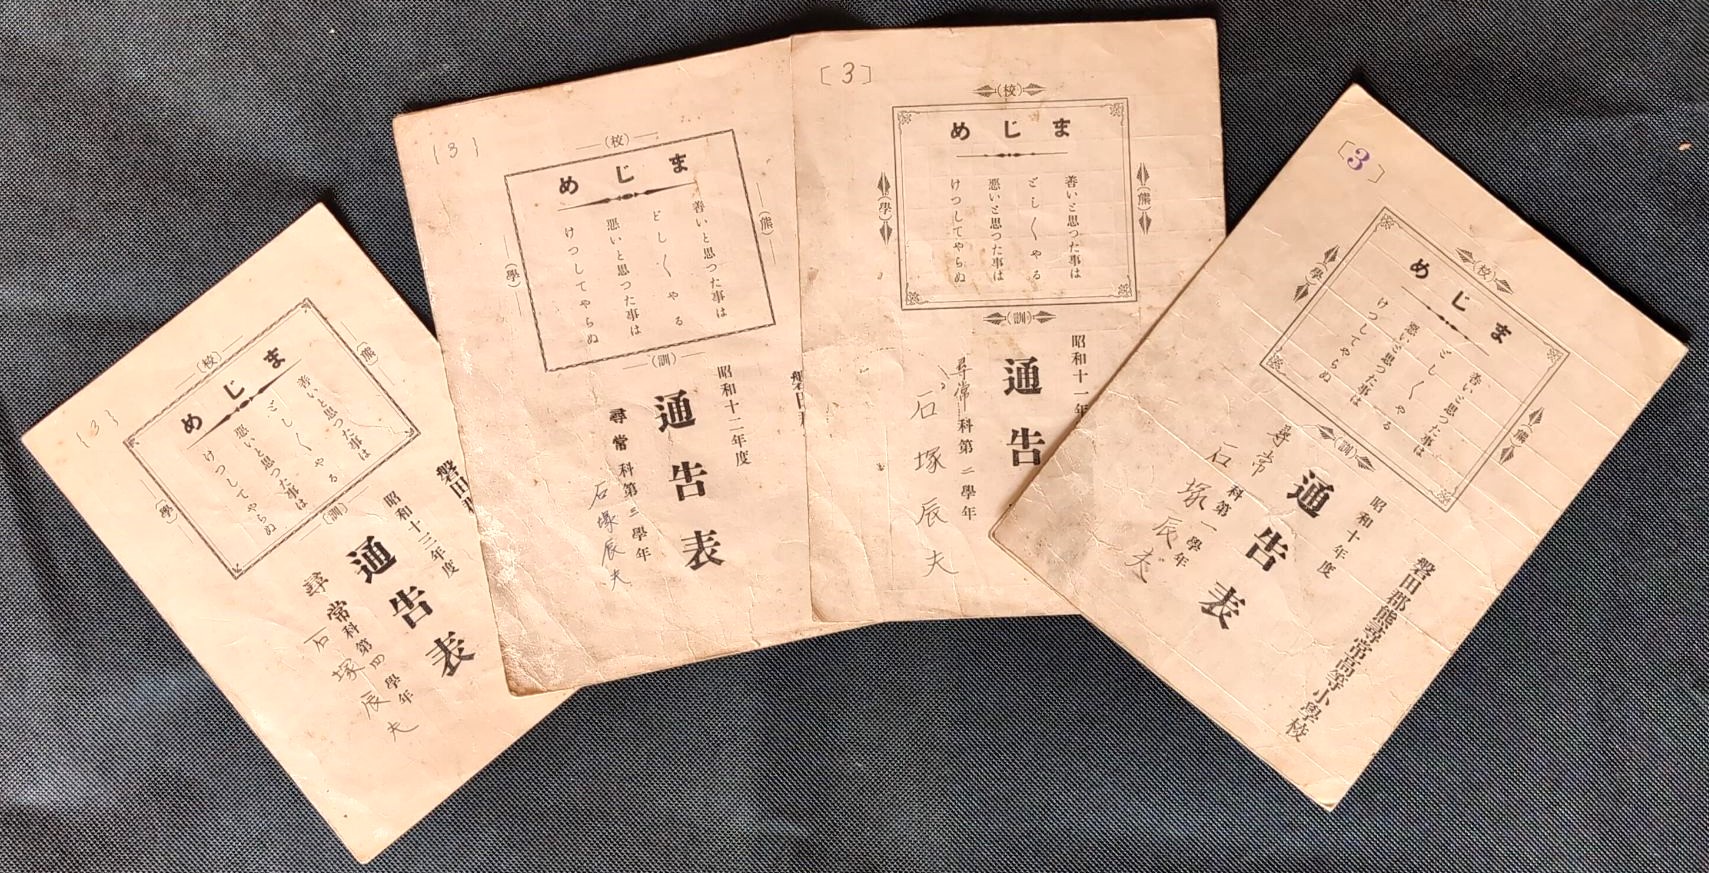 [3]
(校)
(熊)
まじめ
善いと思つた事は
どし〳〵やる
悪いと思つた事は
けつしてやらぬ
(學)
(訓)
磐田郡熊尋常高等小學校
昭和十年度
通告表
尋常科第一學年
石塚辰夫
[3]
(校)
(熊)
まじめ
善いと思つた事は
どし〳〵やる
悪いと思つた事は
けつしてやらぬ
(學)
(訓)
昭和十一年
通告
尋常科第二學年
石塚辰夫
[3]
(校)
(熊)
まじめ
善いと思つた事は
どし〳〵やる
悪いと思つた事は
けつしてやらぬ
(學)
(訓)
磐田
昭和十二年度
通告表
尋常科第三學年
石塚辰夫
[3]
(校)
(熊)
まじめ
善いと思つた事は
どし〳〵やる
悪いと思つた事は
けつしてやらぬ
(學)
(訓)
磐田
昭和十三年度
通告表
尋常科第四學年
石塚辰夫